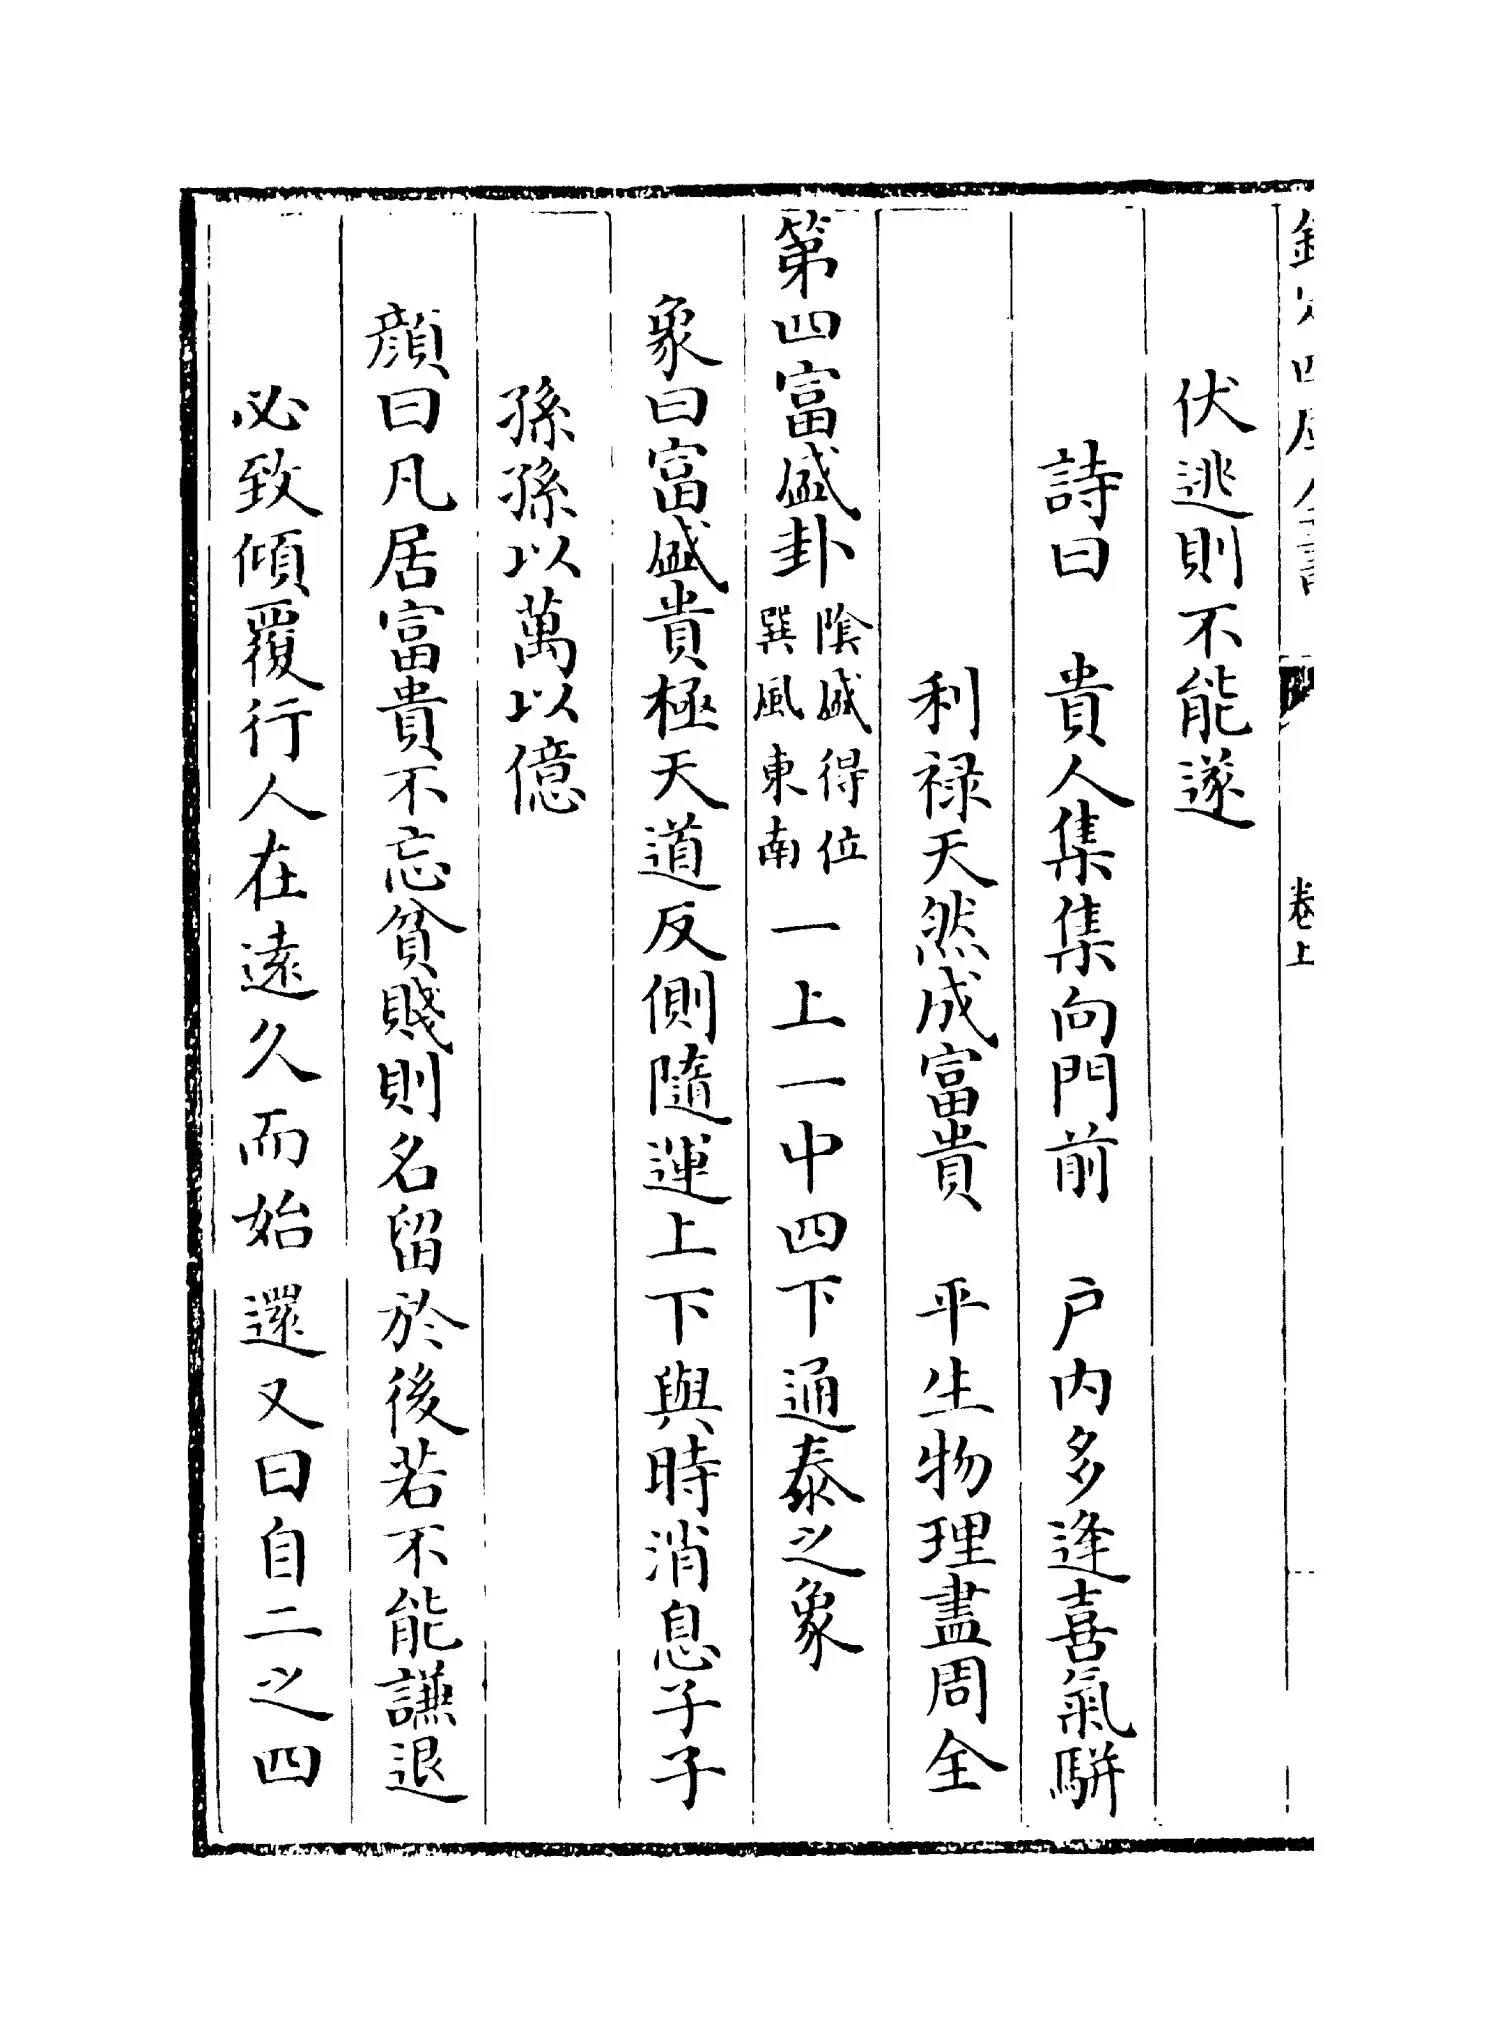 欽定四庫全書
卷上
伏逃則不能遂
詩曰　貴人集集向門前　户内多逢喜氣駢
利禄天然成富貴　平生物理盡周全
第四富盛卦陰盛得位巽風東南一上一中四下通泰之象
象曰富盛貴極天道反側隨運上下與時消息子子
孫孫以萬以億
顔曰凡居富貴不忘貧賤則名留於後若不能謙退
必致傾覆行人在逺久而始還又曰自二之四